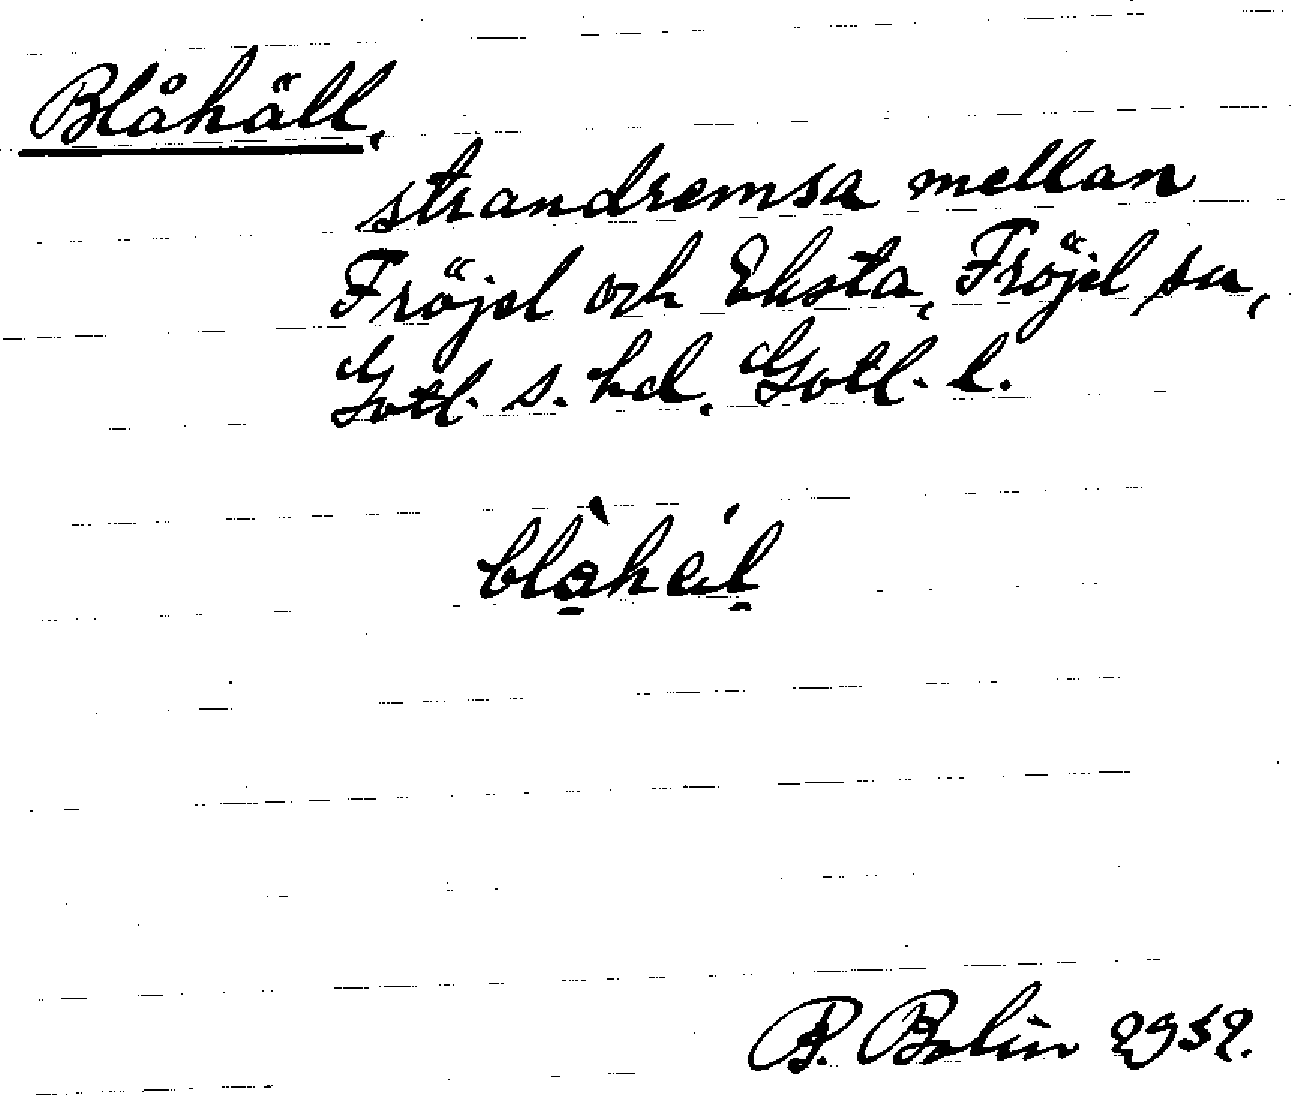 Blåhäll,
strandremsa mellan
Fröjel och Eksta, Fröjel sn,
Gotl. s. hd. Gotl. l.
P. Bolin